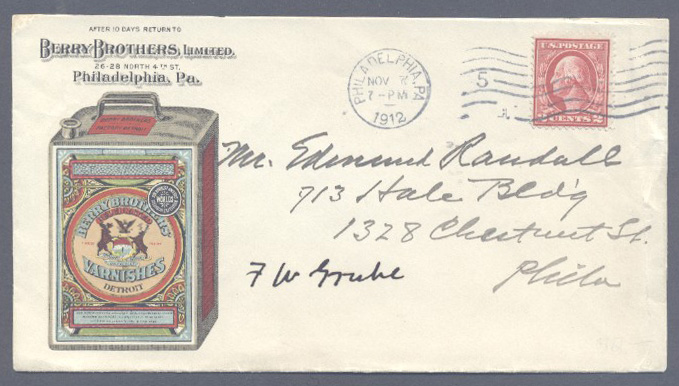 AFTER 10 DAYS RETURN TO
BERRY BROTHERS, LIMITED.
26-28 NORTH 4TH ST.
Philadelphia, Pa.
BERRY BROTHERS'
VARNISHES
DETROIT
WORLDS
PHILADELPHIA, PA.
NOV
7-PM
1912
5
U.S. POSTAGE
2 CENTS 2
Mr. Edmund Randall
713 Hale Bldg
1328 Chestnut St.
Phila
F W Grube